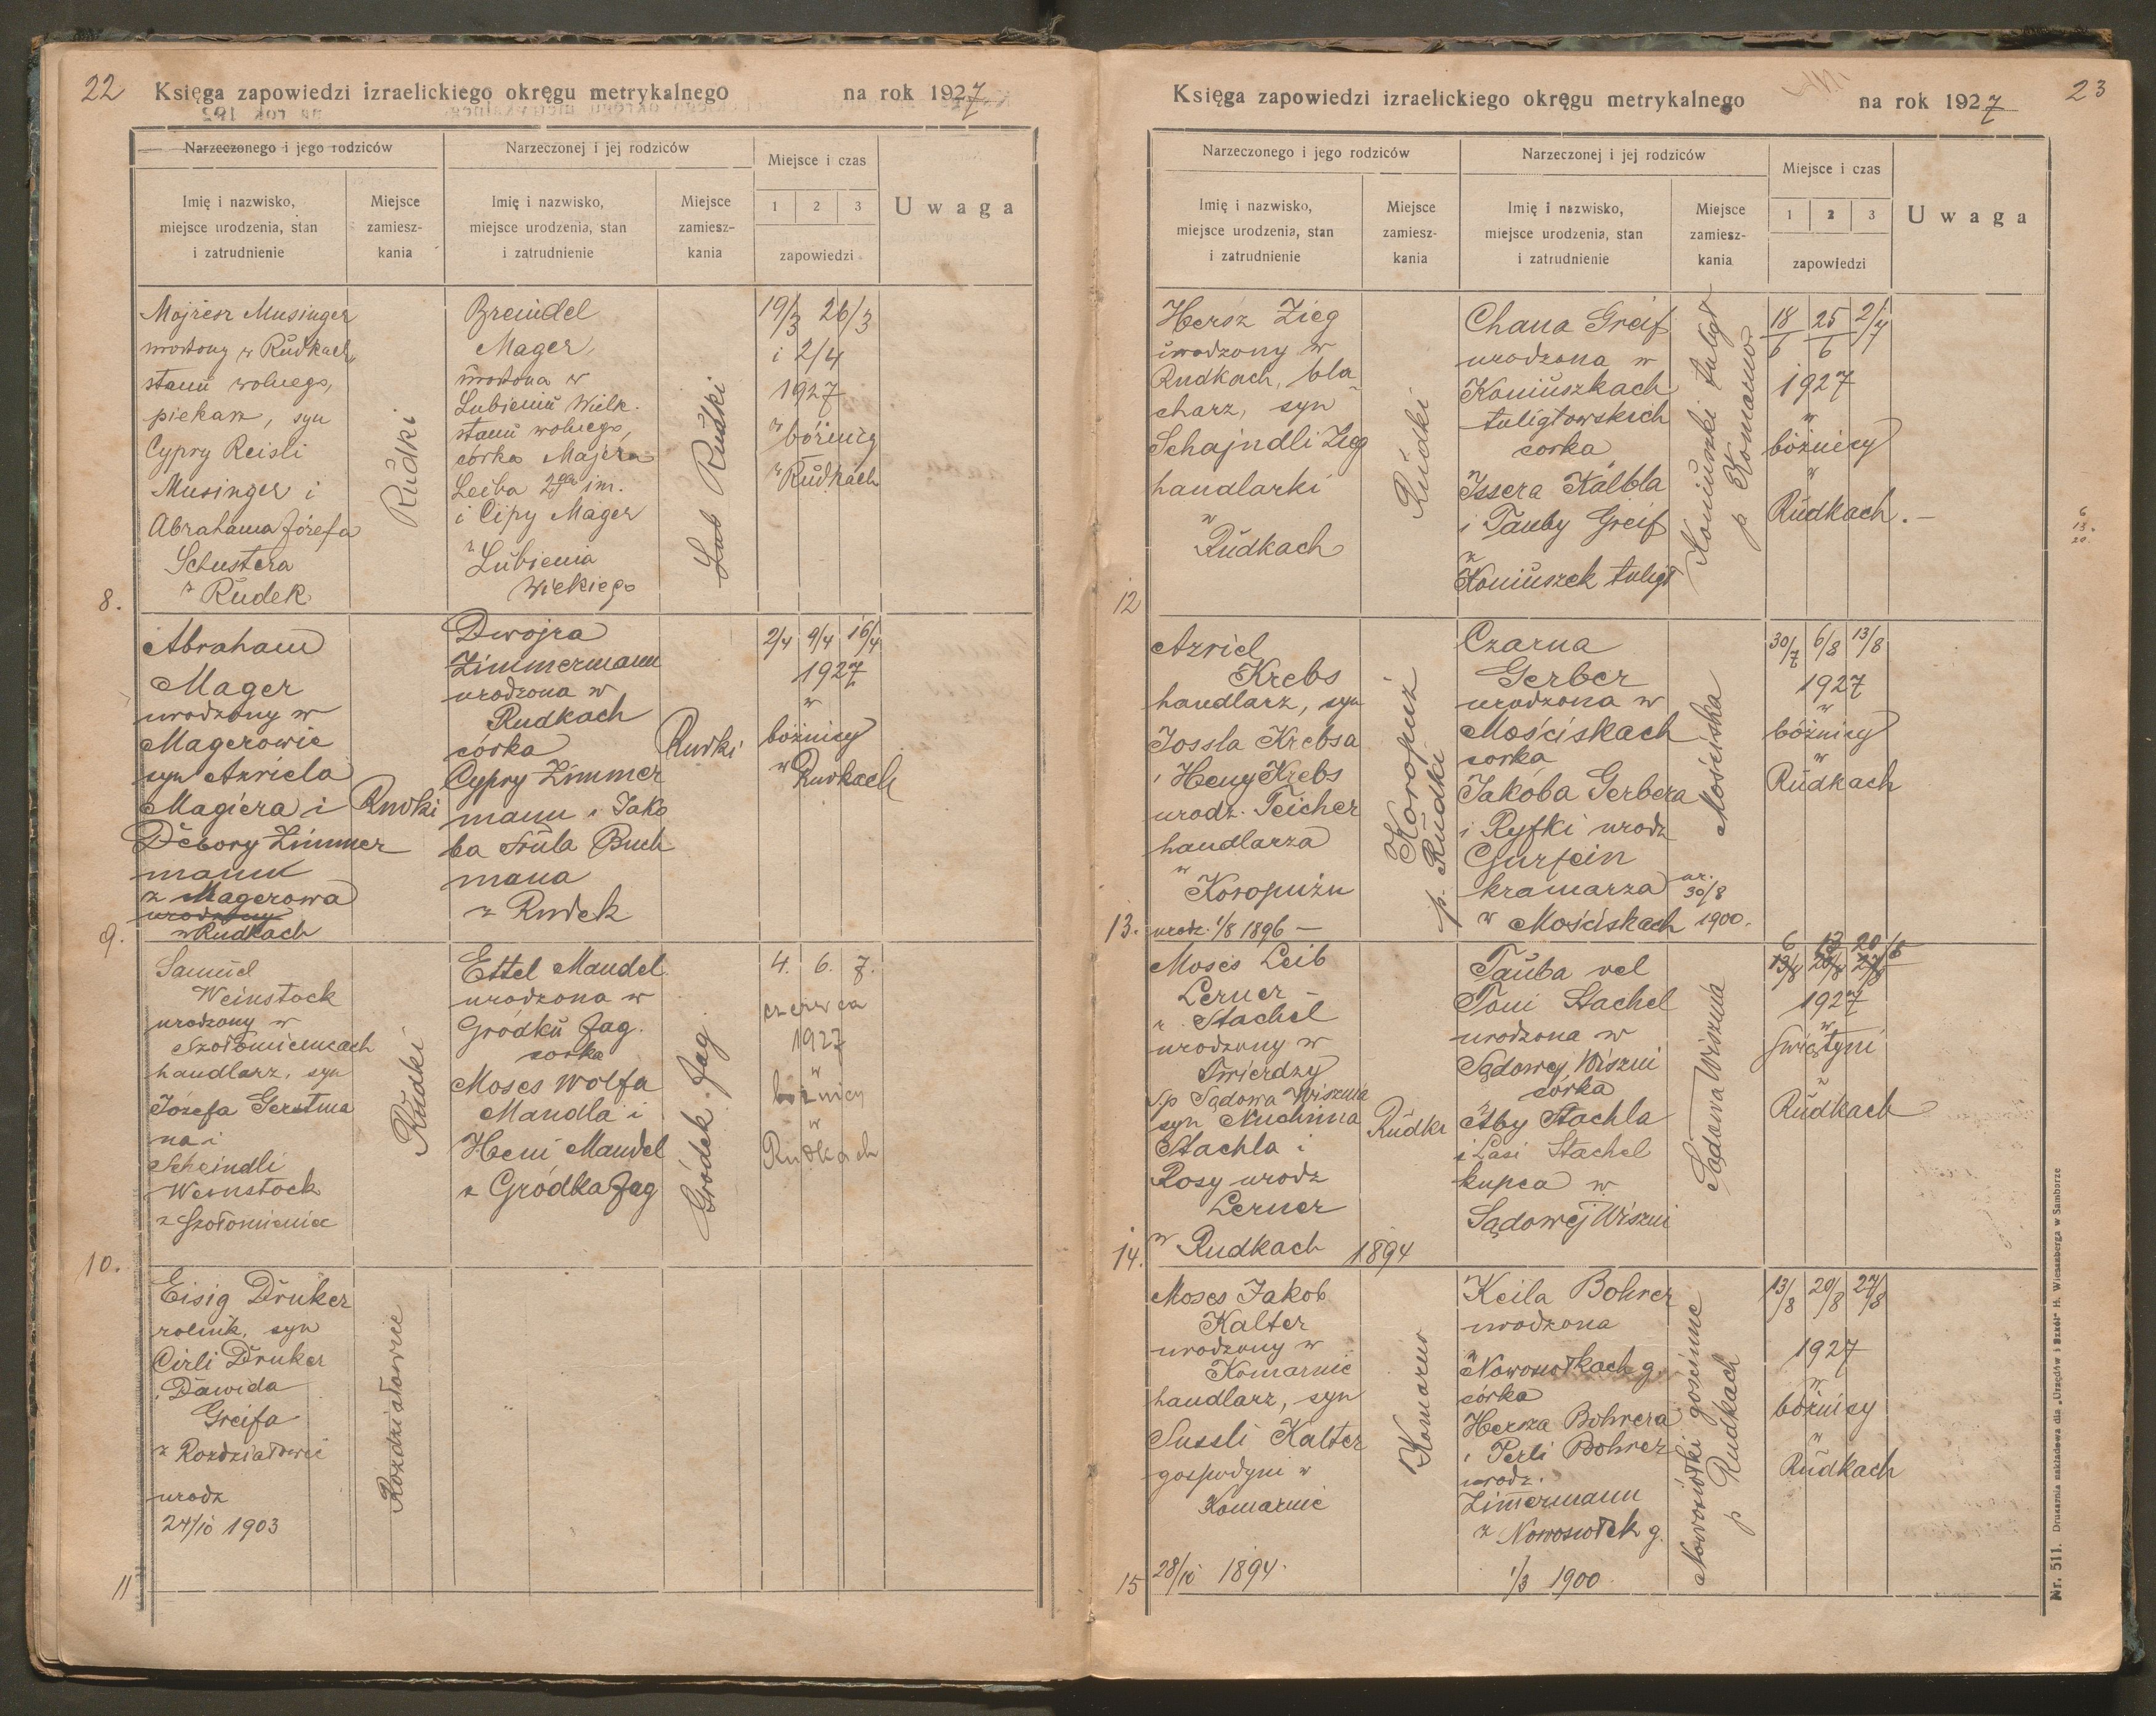 22
Księga zapowiedzi izraelickiego okręgu metrykalnego na rok 1927
Narzeczonego i jego rodziców
Narzeczonej i jej rodziców
Miejsce i czas
Uwaga
Imię i nazwisko,
miejsce urodzenia, stan
i zatrudnienie
Miejsce
zamiesz-
kania
Imię i nazwisko,
miejsce urodzenia, stan
i zatrudnienie
Miejsce
zamiesz-
kania
1 2 3
zapowiedzi
8.
Mojżesz Musinger
urodzony w Rudkach,
stanu wolnego,
piekarz, syn
Cypry Reisli
Musinger i
Abrahama Józefa
Schustera
z Rudek
Rudki
Breindel
Mager,
urodzona w
Lubieniu Wielk.
stanu wolnego,
córka Majera
Leiba 2ga im.
i Cipy Mager
z Lubienia
Wielkiego
Rudki
19/3 26/3
i 2/4
1927
w bóżnicy
w Rudkach
9.
Abraham
Mager
urodzony w
Magerowie
syn Azriela
Magiera i
Debory Zimmer
mann
z Magerowa
urodzony
w Rudkach
Rudki
Dwojra
Zimmermann
urodzona w
Rudkach
córka
Cypry Zimmer
mann i Jako
ba Srula Buch
mana
z Rudek
Rudki
2/4 9/4 16/4
1927
w
bóżnicy
w Rudkach
10.
Samuel
Weinstock
urodzony w
Szołomieniach
handlarz, syn
Józefa Gerstma
na i
Scheindli
Weinstock
z Szołomienia
Rudki
Ettel Mandel
urodzona w
Gródku Jag.
córka
Moses Wolfa
Mandla i
Heni Mandel
z Gródka Jag
Gródek Jag.
4. 6. 7.
czerwca
1927
w
bóżnicy
w
Rudkach
11
Eisig Druker
rolnik, syn
Cirli Druker
i Dawida
Greifa
z Rozdziałowic
urodz
24/10 1903
Rozdziałowice
23
Księga zapowiedzi izraelickiego okręgu metrykalnego na rok 1927
Narzeczonego i jego rodziców
Narzeczonej i jej rodziców
Miejsce i czas
Uwaga
Imię i nazwisko,
miejsce urodzenia, stan
i zatrudnienie
Miejsce
zamiesz-
kania
Imię i nazwisko,
miejsce urodzenia, stan
i zatrudnienie
Miejsce
zamiesz-
kania
1 2 3
zapowiedzi
12
Hersz Zieg
urodzony w
Rudkach, bla-
charz, syn
Schajndli Zieg
handlarki
w
Rudkach
Rudki
Chana Greif
urodzona w
Koniuszkach
tuligłowskich
córka
Issera Kalbla
i Tauby Greif
z
Koniuszek tuligł
Koniuszki tuligł
p Komarno
18/6 25/6 2/7
1927
w
bóżnicy
w
Rudkach.—
6
13.
20.
13.
Azriel
Krebs
handlarz, syn
Jossla Krebsa
i Heny Krebs
urodz. Teicher
handlarza
w
Koropużu
urodz. 1/8 1896 —
Koropuż
p. Rudki
Czarna
Gerber
urodzona w
Mościskach
córka
Jakóba Gerbera
i Ryfki urodz
Gurfein
kramarza
w Mościskach
ur.
30/8
1900.
Mościska
30/7 6/8 13/8
1927
w
bóżnicy
w
Rudkach
14.
Moses Leib
Lerner —
r. Stachel
urodzony w
Twierdzy
p Sądowa Wisznia
syn Nuchima
Stachla i
Rosy urodz
Lerner
w Rudkach 1894
Rudki
Tauba vel
Toni Stachel
urodzona w
Sądowej Wiszni
córka
Aby Stachla
i Lasi Stachel
kupca w
Sądowej Wiszni
Sądowa Wisznia
6 13 20/8
13/8 20/8 27/8
1927
w
świątyni
w
Rudkach
15
Moses Jakob
Kalter
urodzony w
Komarnie
handlarz, syn
Sussli Kalter
gospodyni w
Komarnie
28/10 1894.
Komarno
Keila Bohrer
urodzona
w Nowosiołkach g.
córka
Hersza Bohrera
i Perli Bohrer
urodz.
Zimmermann
z Nowosiołek g.
1/3 1900.
Nowosiółki gościnne
p Rudkach
13/8 20/8 27/8
1927
w
bóżnicy
w
Rudkach
Nr. 511. Drukarnia nakładowa dla „Urzędów i Szkół" H. Wiesenberga w Samborze